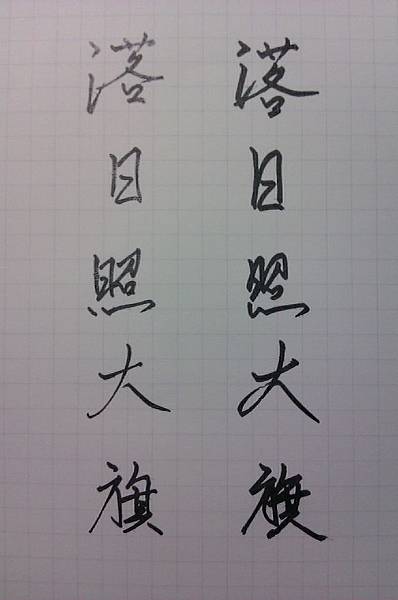 落日照大旗
落日照大旗